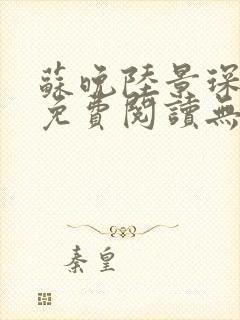 蘇晚陸景琛
免費閱讀無
秦皇